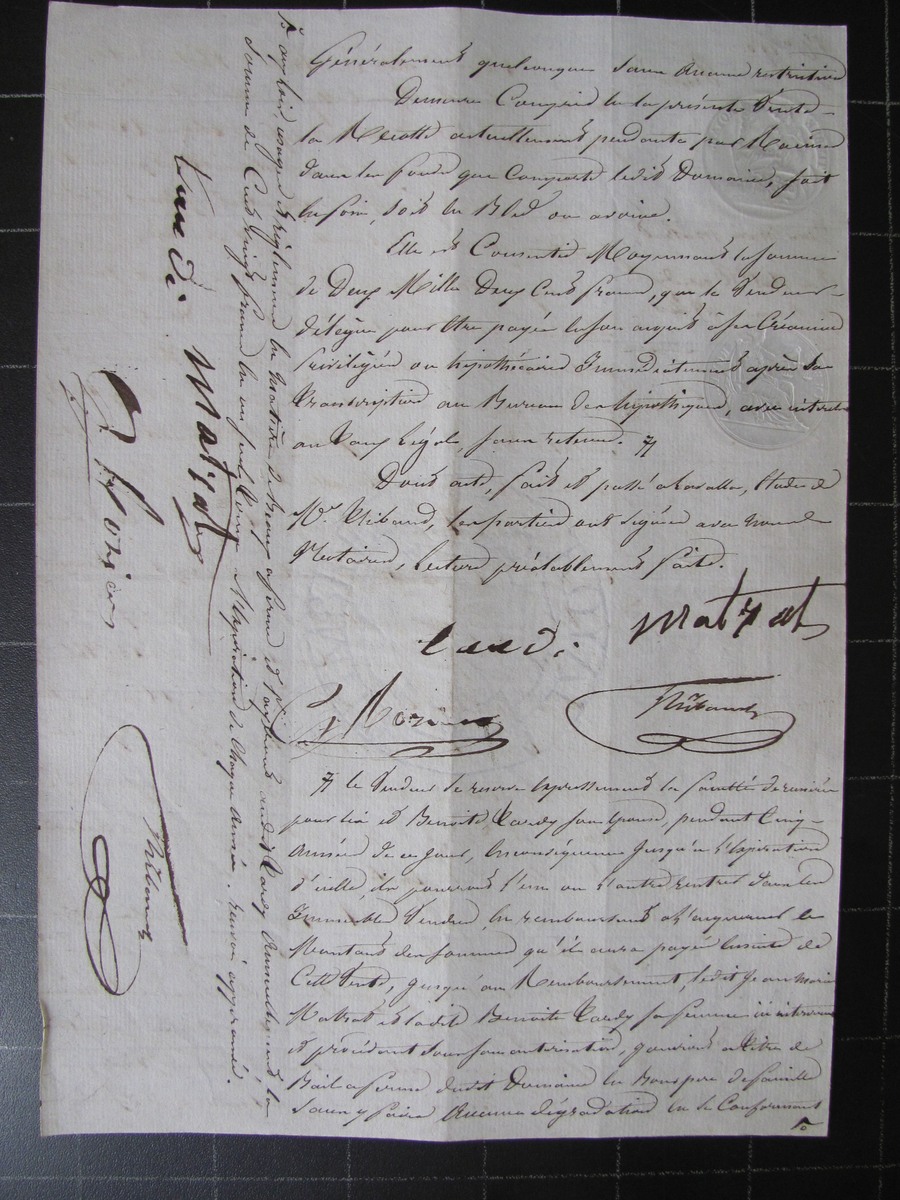 Généralement quelconques sans aucune restriction
Demeure Compris en la présente Vente
la Recolte actuellement pendante par Racines
dans les fonds que Comporte ledit Domaine, soit
en foin, soit en Bled ou avoine.
Elle est Consentie Moyennant la somme
de Deux Mille Deux Cents francs, que le Vendeur
délègue pour être payée en son acquit à ses Créanciers
Priviligiés ou hipothécaires Immédiatement après la
transcription au Bureau des hipothèques, avec intérêts
au Taux Légal, sans retenue. 7/
Dont acte, fait et passé a Lavalla, Etude de
Me. Thibaud, les parties ont signées avec nous
Notaires, lecture préalablement faite.
tardi Matrat
Thibaud
7/ le Vendeur se reserve Expressement la faculté de reméré
pour lui et Benoite Tardy son épouse, pendant Cinq
Années de ce jour, En conséquence Jusqu'à l'Expiration
d'icelle, ils pourront l'un ou l'autre rentrer dans les
Immeubles Vendus, en remboursant à l'acquereur le
Montant des sommes qu'il aura payé Ensuite de
Cette Vente, jusqu'au Remboursement, ledit Jean Marie
Matrat et ladite Benoite Tardy sa femme ici intervenue
et procédant sous son autorisation, jouiront a titre de
Bail a ferme dudit Domaine en Bons pere de famille
sans y faire Aucune dégradation en se Conformant
aux lois, usages et règlements en Matière de Baux a ferme et payeront audit Tardy Annuellement la
somme de Cent vingt francs en un seul terme à l'Expiration de Chaque Année. renvoi approuvé.
tardi Matrat
Thibaud